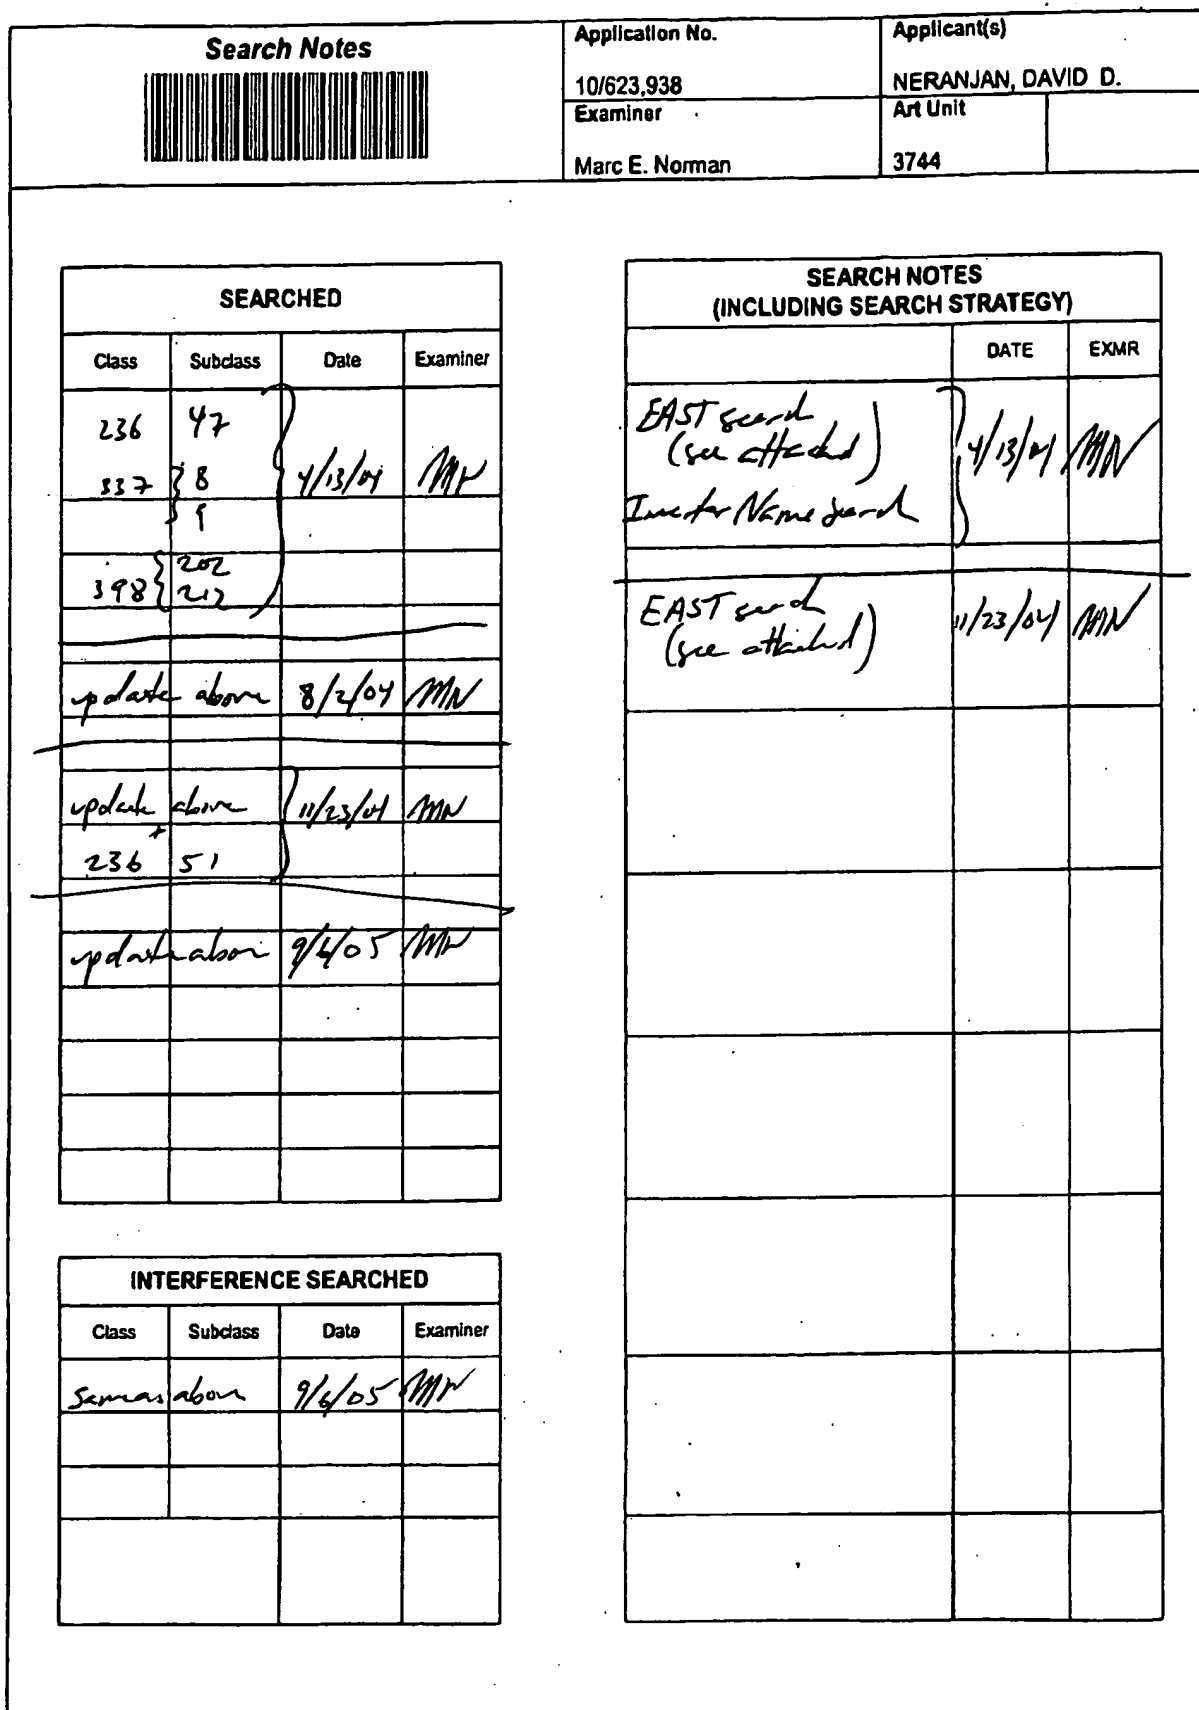 Search Notes
Application No.
10/623,938
Applicant(s)
NERANJAN, DAVID D.
Examiner
Marc E. Norman
Art Unit
3744
SEARCHED
Class Subclass Date Examiner
236 47
337 8 4/13/04 MN
9
398 202
212
update above 8/2/04 MN
update above 11/23/04 MN
+
236 51
update above 9/6/05 MN
INTERFERENCE SEARCHED
Class Subclass Date Examiner
Same as above 9/6/05 MN
SEARCH NOTES
(INCLUDING SEARCH STRATEGY)
DATE EXMR
EAST search
(see attached) 4/13/04 MN
Inventor Name Search
EAST search 11/23/04 MN
(see attached)